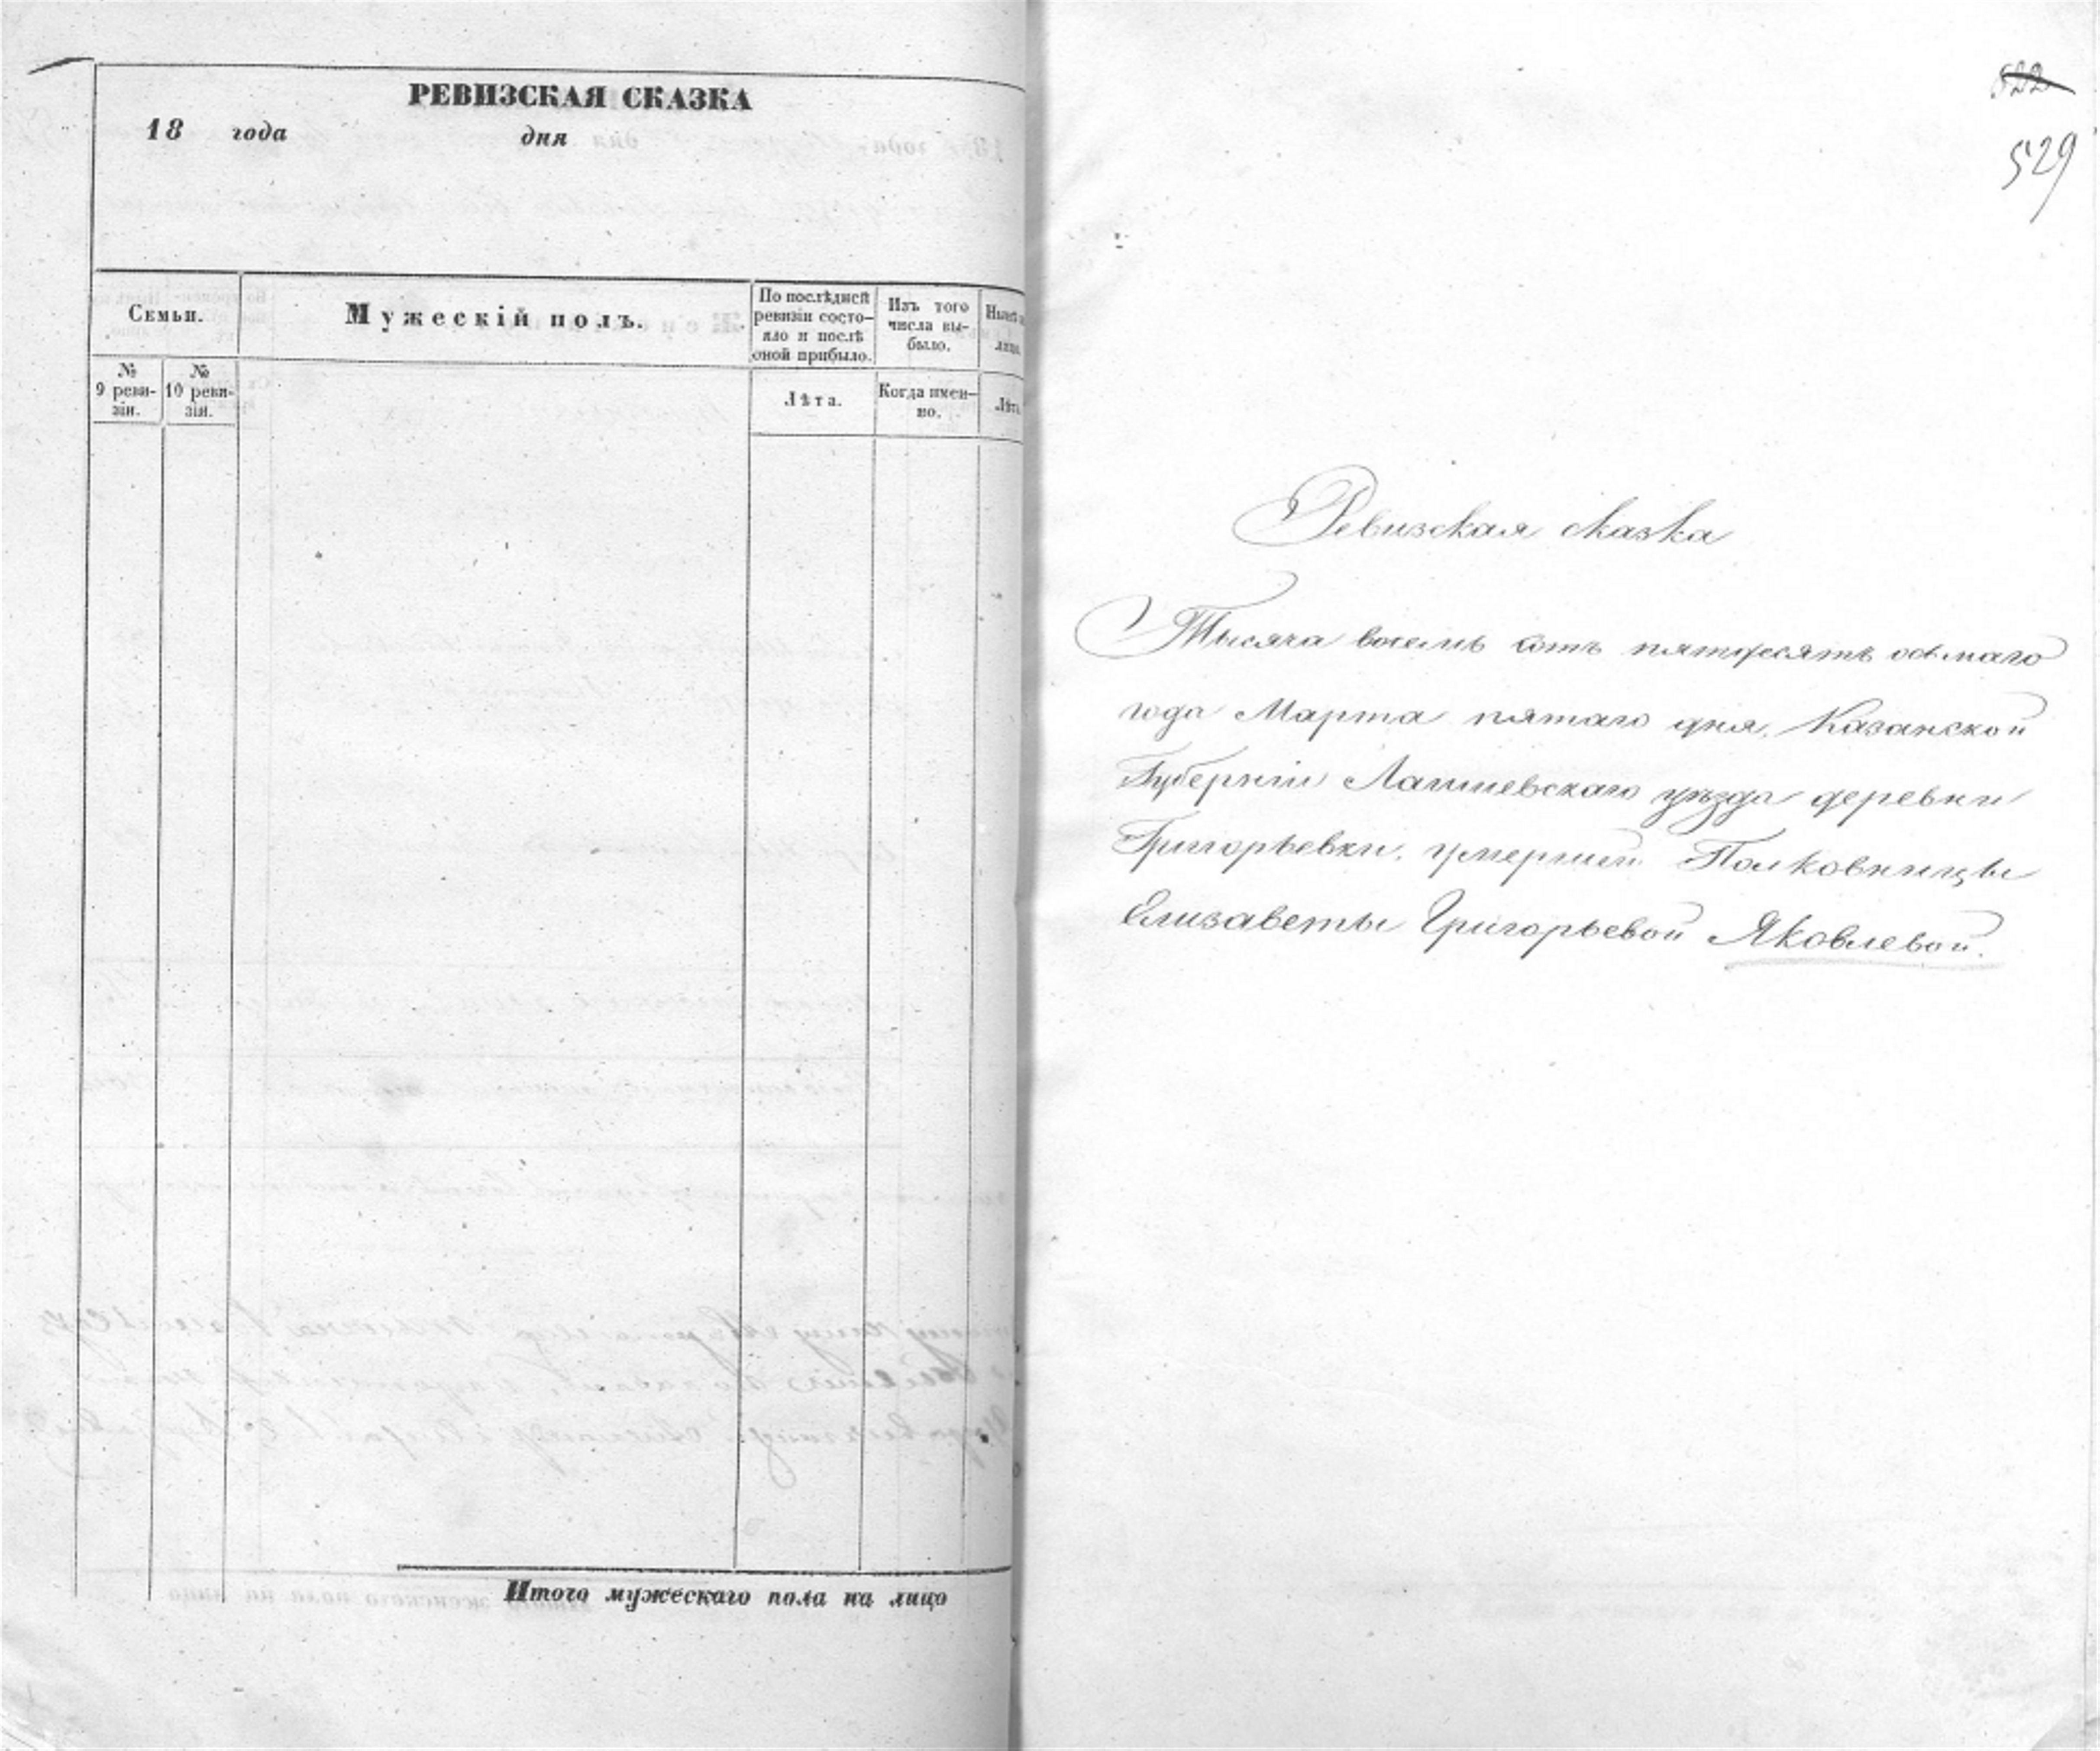 РЕВИЗСКАЯ СКАЗКА
18 года дня
Семьи.
Мужескій полъ.
По послѣдней
ревизіи состо-
яло и послѣ
оной прибыло.
Изъ того
числа вы-
было.
№
9 реви-
зіи.
№
10 реви-
зіи.
Лѣта.
Когда имен-
но.
Итого мужескаго пола на лицо
522
529
Ревизская сказка
Тысяча восемь сотъ пятдесятъ осьмаго
года Марта пятаго дня, Казанской
Губерніи Лаишевскаго уѣзда деревни
Григорьевки, умершей Полковницы
Елизаветы Григорьевой Яковлевой.